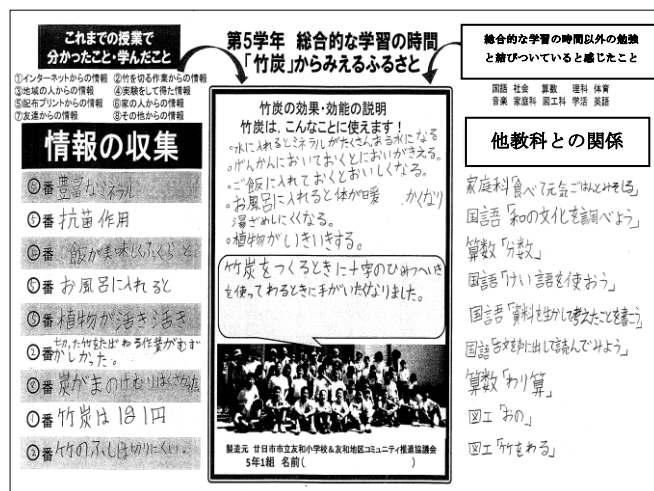 これまでの授業で
分かったこと・学んだこと
①インターネットからの情報 ②竹を切る作業からの情報
③地域の人からの情報 ④実験をして得た情報
⑤配布プリントからの情報 ⑥家の人からの情報
⑦友達からの情報 ⑧その他からの情報
情報の収集
番 豊富なミネラル
⑤番 抗菌作用
番 ご飯が美味しくふっくらと
⑤番 お風呂に入れると
⑤番 植物が活き活き
②番 切った竹をたばねる作業がむずかしかった。
番 炭がまのけむりはくさかった
①番 竹炭は181円
②番 竹のふしは切りにくい。
第5学年 総合的な学習の時間
「竹炭」からみえるふるさと
竹炭の効果・効能の説明
竹炭は、こんなことに使えます！
・水に入れるとミネラルがたくさんある水になる
・げんかんにおいておくとにおいがきえる。
・ご飯に入れておくとおいしくなる。
・お風呂に入れると体が暖かくなり
湯ざめしにくくなる。
・植物がいきいきする。
竹炭をつくるときに十字のひみつへいき
を使ってわるときに手がいたくなりました。
製造元 廿日市市立友和小学校＆友和地区コミュニティ推進協議会
5年1組 名前( )
総合的な学習の時間以外の勉強
と結びついていると感じたこと
国語 社会 算数 理科 体育
音楽 家庭科 図工科 学活 英語
他教科との関係
家庭科「食べて元気ごはんとみそしる」
国語「和の文化を調べよう」
算数「分数」
国語「けい語を使おう」
国語「資料を生かして考えたことを書こう」
国語「古文を声に出して読んでみよう」
算数「わり算」
図工「おの」
図工「竹をわる」